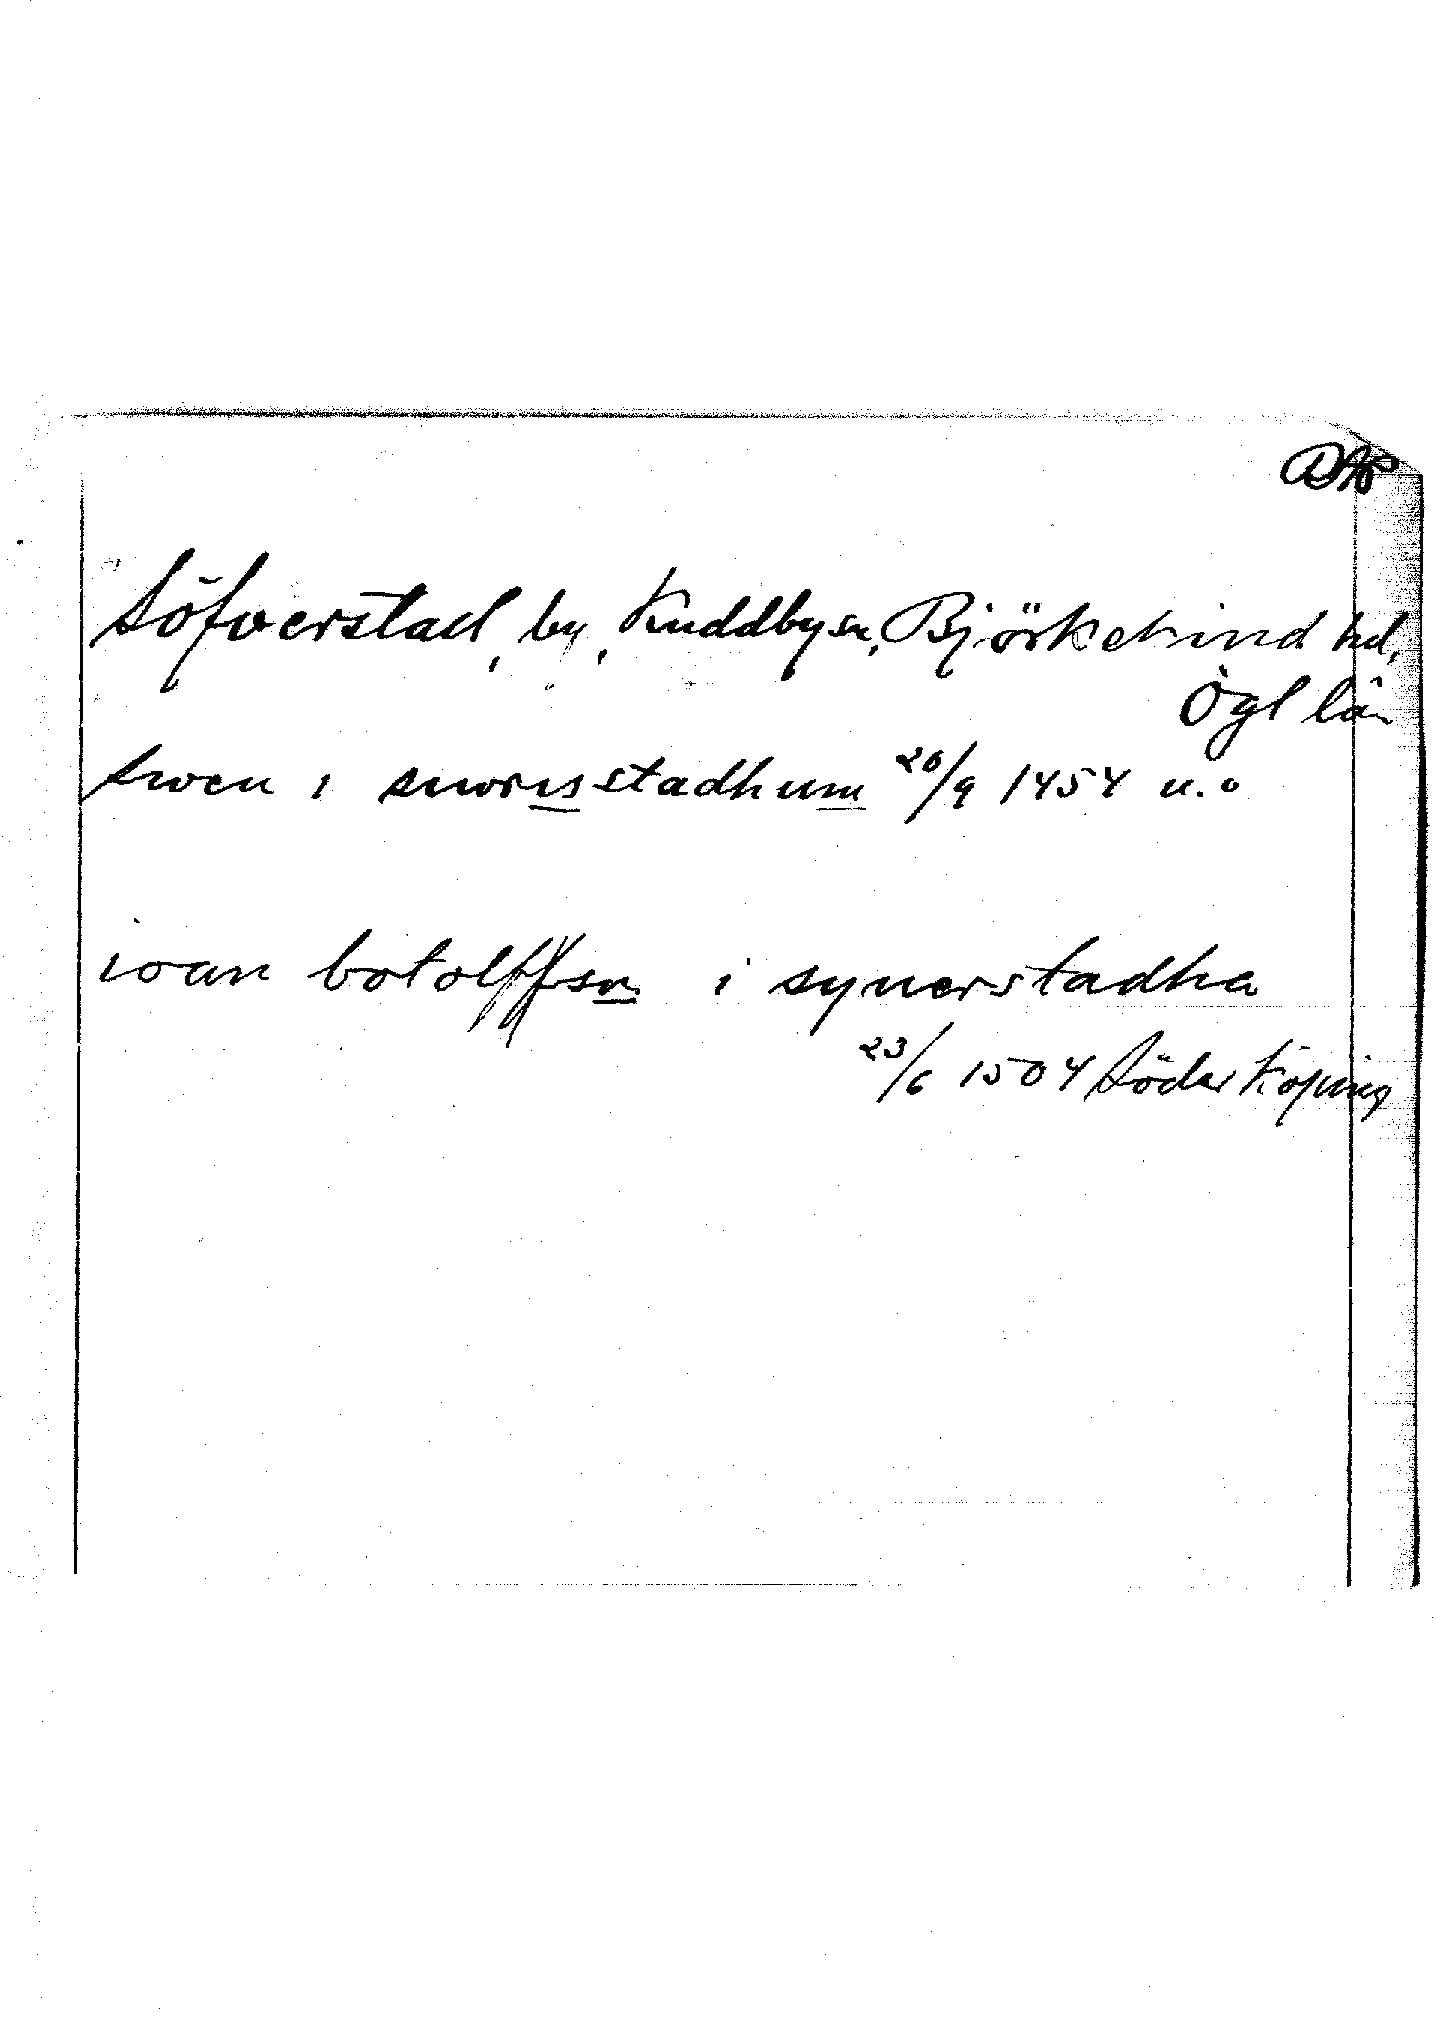 DAP
Söfverstad, by, Kuddby sn, Björkekind hd,
Ögl län
Swen i snorisstadhum 20/9 1454 u. o
ioan botolffsn i synerstadha
23/6 1504 Söderköping